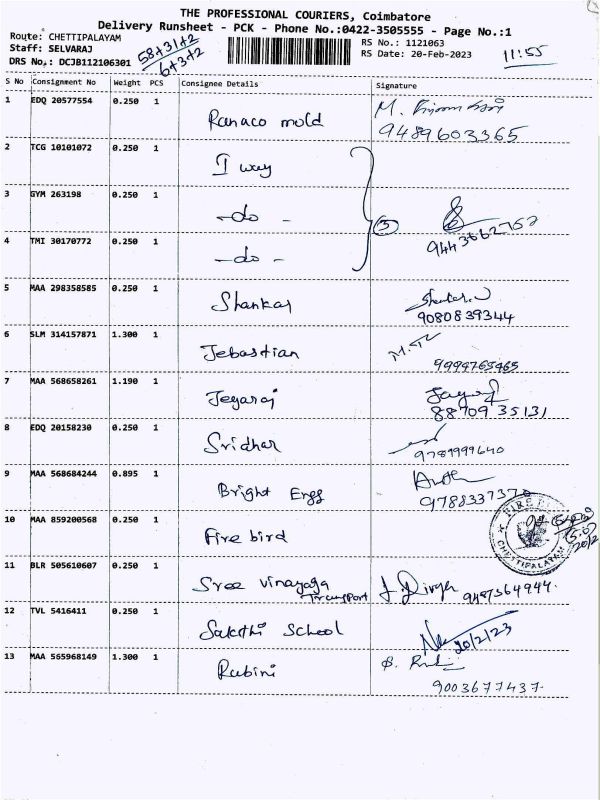 THE PROFESSIONAL COURIERS, Coimbatore
Delivery Runsheet - PCK - Phone No.:0422-3505555 - Page No.:1
Route: CHETTIPALAYAM
Staff: SELVARAJ
DRS No,: DCJB112106301
58+31+2
6+3+2
RS No.: 1121063
RS Date: 20-Feb-2023
11:55
S No Consignment No Weight PCS Consignee Details Signature
1 EDQ 20577554 0.250 1 Ranaco mold M.
9489603365
2 TCG 10101072 0.250 1 I way
3 GYM 263198 0.250 1 -do - 3
4 TMI 30170772 0.250 1 -do - 9443662752
5 MAA 298358585 0.250 1 Shankar
9080839344
6 SLM 314157871 1.300 1 Jebastian
9994765465
7 MAA 568658261 1.190 1 Jegaraj
88709 35131
8 EDQ 20158230 0.250 1 Sridhar
9789999640
9 MAA 568684244 0.895 1 Bright Engg
9788337370
10 MAA 859200568 0.250 1 Fire bird
FIRE
CHETTIPALAYAM
11 BLR 505610607 0.250 1 Sree Vinayaga
Transport 9487364944.
12 TVL 5416411 0.250 1 Sakthi School
20/2/23
13 MAA 565968149 1.300 1 Rubini
9003677437.